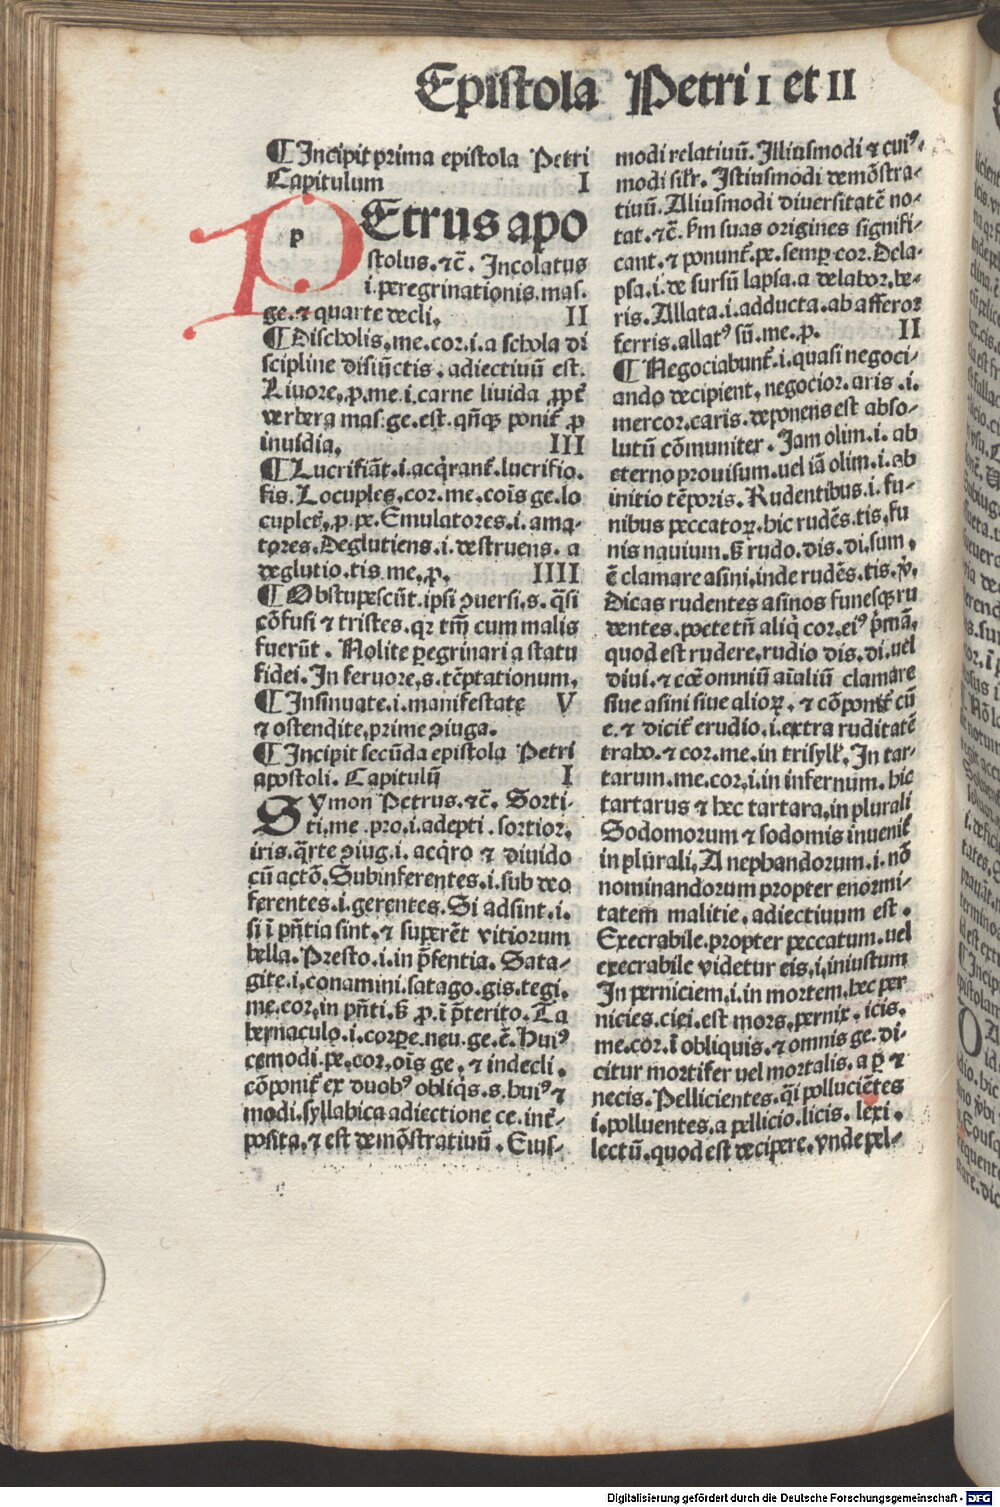 Epistola Petri I et II
¶ Incipit prima epistola Petri
Capitulum I
p
PEtrus apo
stolus.⁊c̄. Incolatus
i.peregrinationis.mas.
ge.⁊ quarte decli. II
¶ Discholis.me.cor.i.a schola di
scipline disiūctis.adiectiuū est.
Liuore.p.me.i.carne liuida ꝓpt̄
verbera mas.ge.est.qn̄qꝫ ponit̄ ꝓ
inuidia. III
¶ Lucrifiāt.i.acq̄rant.lucrifio.
fis. Locuples.cor.me.cōis ge.lo
cuplet̄.p.pe. Emulatores.i.ama-
tores. Deglutiens.i.destruens.a
deglutio.tis.me.p. IIII
¶ Obstupescūt.ipsi ꝯuersi.s.q̄si
cōfusi ⁊ tristes.qꝛ tm̄ cum malis
fuerūt. Nolite ꝑegrinari a statu
fidei. In feruore.s.tēptationum.
¶ Insinuate.i.manifestate V
⁊ ostendite.prime ꝯiuga.
¶ Incipit secūda epistola Petri
apostoli. Capitulū I
Symon Petrus.⁊c̄. Sorti-
ti.me.pro.i.adepti.sortior.
iris.q̄rte ꝯiug.i.acq̄ro ⁊ diuido
cū actō. Subinferentes.i.sub deo
ferentes.i.gerentes. Si adsint.i.
si ī pn̄tia sint.⁊ superēt vitiorum
bella. Presto.i.in p̄sentia. Sata-
gite.i.conamini.satago.gis.tegi.
me.cor.in pn̄ti.ſꝫ p.ī p̄terito. Ta
bernaculo.i.corpe.neu.ge.ē. Huiꝰ
cemodi.pe.cor.oīs ge.⁊ indecli.
cōponit̄ ex duobꝰ obliq̄s.s.huiꝰ ⁊
modi.syllabica adiectione ce.int̄-
posita.⁊ est demōstratiuū. Eius-
modi relatiuū. Illiusmodi ⁊ cuiꝰ-
modi silr̄. Istiusmodi demōstra-
tiuū. Aliusmodi diuersitatē no-
tat.⁊c̄. ẜm suas origines signifi-
cant.⁊ ponunt̄.pe.semꝑ cor. Dela-
psa.i.de sursū lapsa.a delabor.be-
ris. Allata.i.adducta.ab afferor
ferris.allatꝰ sū.me.p. II
¶ Negociabunt̄.i.quasi negoci-
ando decipient.negocior.aris.i.
mercor.caris.deponens est abso-
lutū cōmuniter. Iam olim.i.ab
eterno prouisum.uel iā olim.i.ab
initio tēporis. Rudentibus.i.fu-
nibus peccatoꝝ.hic rudēs.tis.fu
nis nauium.ſꝫ rudo.dis.di.sum.
ē clamare asini.inde rudēs.tis.ꝟ.
Dicas rudentes asinos funesqꝫ ru
dentes.poete tn̄ aliq̄ cor.eiꝰ p̄mā.
quod est rudere.rudio dis.di.uel
diui.⁊ eēt omniū aīaliū clamare
siue asini siue alioꝝ.⁊ cōponit̄ cū
e.⁊ dicit̄ erudio.i.extra ruditatē
trabo.⁊ cor.me.in trisyll̄. In tar-
tarum.me.cor.i.in infernum.hic
tartarus ⁊ hec tartara.in plurali
Sodomorum ⁊ sodomis inuenit̄
in plurali. A nephandorum.i.nō
nominandorum propter enormi-
tatem malitie.adiectiuum est.
Execrabile.propter peccatum.uel
execrabile videtur eis.i.iniustum
In perniciem.i.in mortem.hec per
nicies.ciei.est mors.pernix.icis.
me.cor.ī obliquis.⁊ omnis ge.di-
citur mortifer uel mortalis.a ꝑ ⁊
necis. Pellicientes.q̄i polluciētes
i.polluentes.a pellicio.licis.lexi.
lectū.quod est decipere.vnde pel-
Digitalisierung gefördert durch die Deutsche Forschungsgemeinschaft - DFG